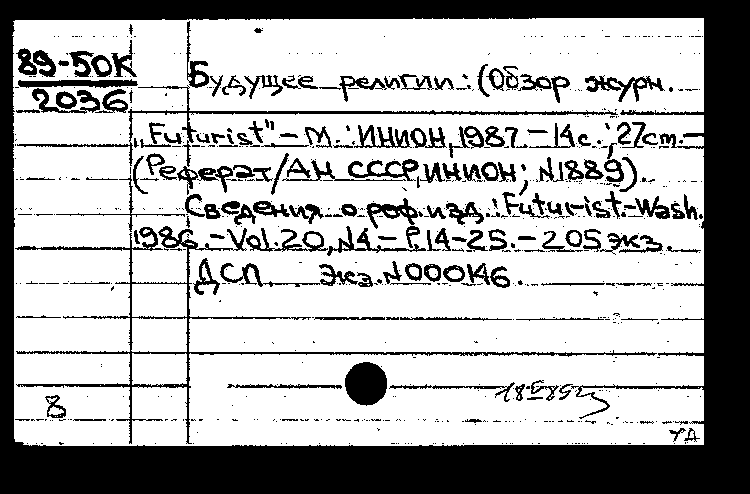 89-50К
2036
Будущее религии : (Обзор журн.
„Futurist". - М. : ИНИОН, 1987. - 14 с. ; 27 cm. -
(Реферат/АН СССР, ИНИОН ; N1889).
Сведения о реф. изд. : Futurist. - Wash.,
1986. - Vol. 20, N4. - P. 14-25. - 205 экз.
ДСП. Экз. N000146.
8